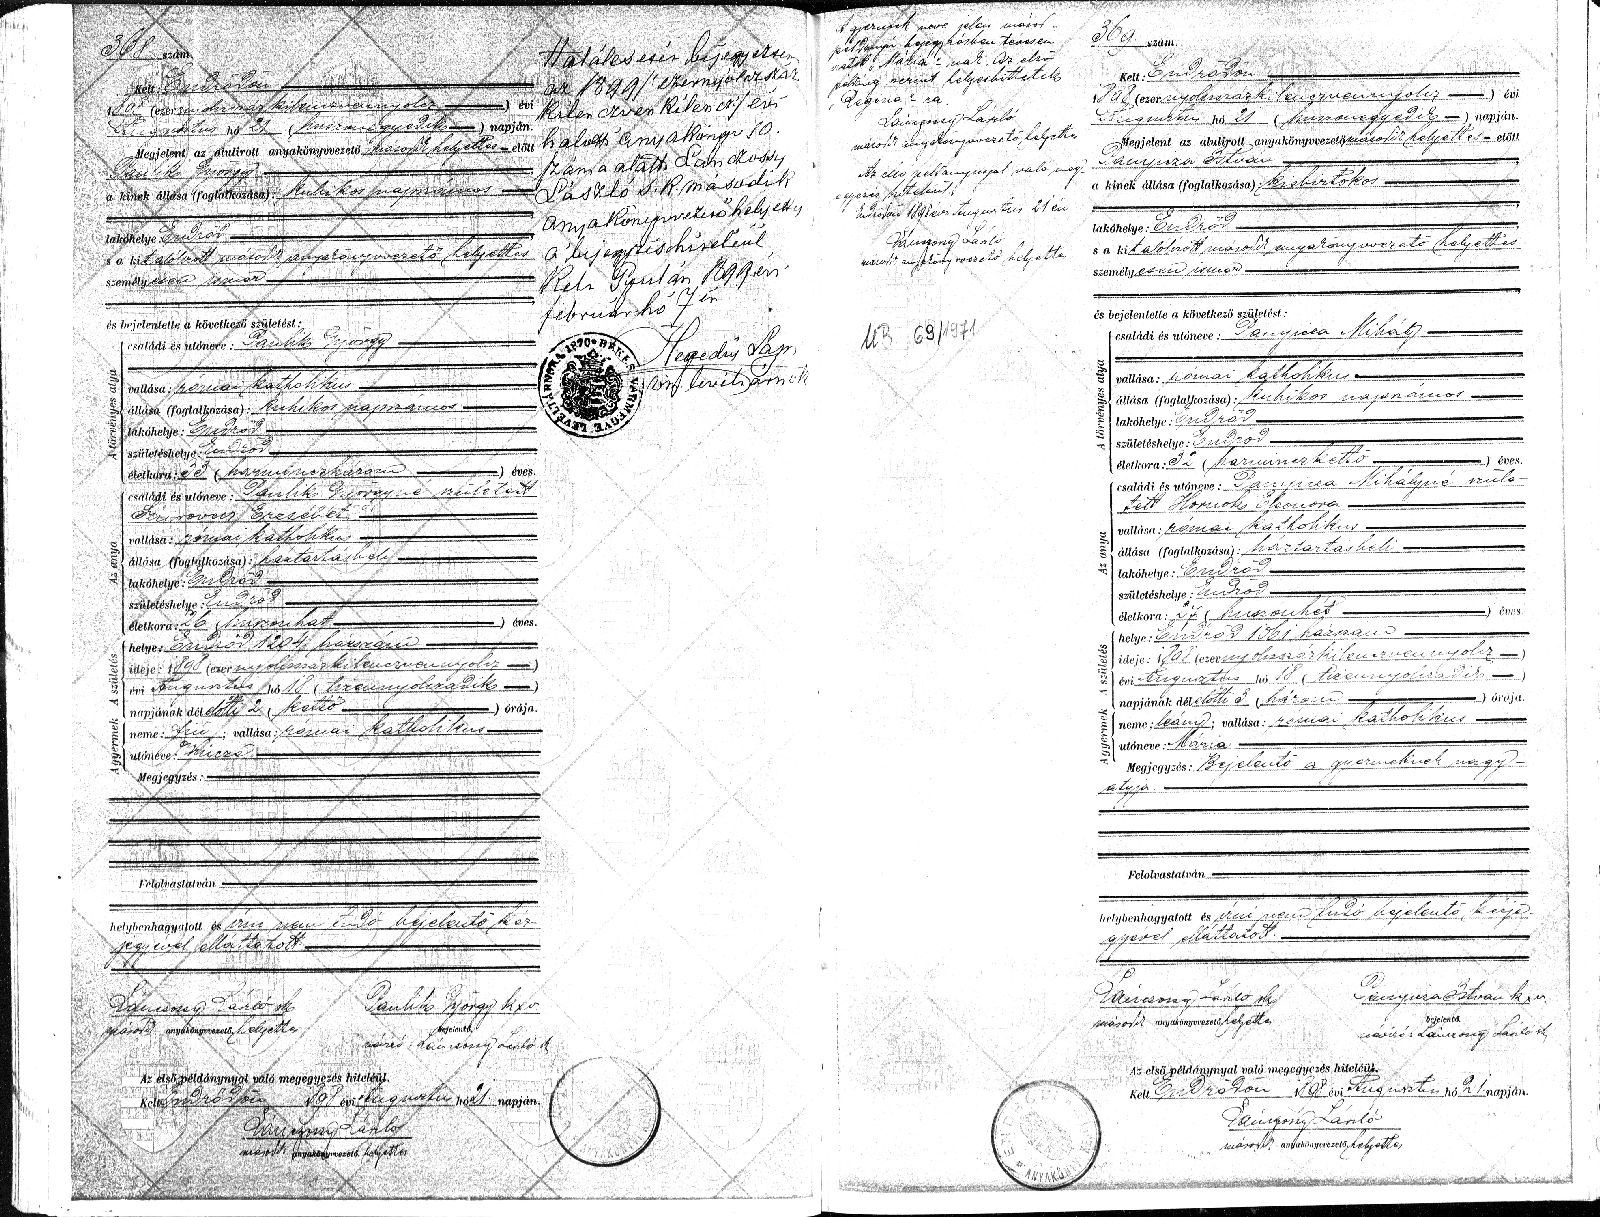 368 szám.
Kelt Endrődön
1898 (ezer nyolcszázkilenczvennyolcz) évi
Augusztus hó 21 (huszonegyedik) napján.
Megjelent az alulirott anyakönyvvezető másodh helyettes előtt
Paulik György
a kinek állása (foglalkozása): kubikos napszámos
lakóhelye Endrőd
s a kit alólirott másodh anyakönyvvezető helyettes
személyesen ismer
és bejelentette a következő születést:
A törvényes atyja
családi és utóneve: Paulik György
vallása: római katholikus
állása (foglalkozása): kubikos napszámos
lakóhelye: Endrőd
születéshelye: Endrőd
életkora: 33 (harminczhárom) éves.
Az anya
családi és utóneve: Paulik Györgyné született
Erzsébet
vallása: római katholikus
állása (foglalkozása): háztartásbeli
lakóhelye: Endrőd
születéshelye: Endrőd
életkora: 26 (huszonhat) éves.
A születés
helye: Endrőd 1204 házszám
ideje: 1898 (ezer nyolcszázkilenczvennyolcz)
évi Augusztus hó 18 (tizennyolczadik)
napjának délelőtti 2 (kettő) órája.
A gyermek
neme: fiu; vallása: római katholikus
utóneve: Imre
Megjegyzés:
Felolvastatván
helybenhagyatott és irni nem tudó bejelentő kéz-
jegyével elláttatott
László sk
másodh anyakönyvvezető helyettes
Paulik György k x v
bejelentő.
László sk
Az első példánynyal való megegyezés hiteléül.
Kelt Endrődön 1898 évi Augusztus hó 21 napján.
László
másodh anyakönyvvezető helyettes
Halálesetén bejegyeztem
az 1899/ezernyolczszáz
kilenczvenkilencz/évi
halotti anyakönyv 10.
száma alatt
László s.k. második
anyakönyvvezetőhelyettes
a bejegyzés hiteléül
Kelt Gyulán 1899 évi
február hó 7 én
Hegedüs
BÉKÉS VÁRMEGYE LEVÉLTÁRNOKA 1890
A gyermek neve jelen másod-
példányú bejegyzésben tévesen
"Mária"-nak. Az első
példány szerint helyesbittetik
"Regina"-ra.
László
másodh anyakönyvvezető helyettes
Az első példánynyal való meg-
egyezés hiteléül.
Endrődön 1898 évi Augusztus 21 én
László
másodh anyakönyvvezető helyettes
63/1971
369 szám.
Kelt: Endrődön
1898 (ezer nyolcszázkilenczvennyolcz) évi
Augusztus hó 21 (huszonegyedik) napján.
Megjelent az alulirott anyakönyvvezető másodh helyettes előtt
István
a kinek állása (foglalkozása): kisbirtokos
lakóhelye: Endrőd
s a kit alólirott másodh anyakönyvvezető helyettes
személyesen ismer
és bejelentette a következő születést:
A törvényes atyja
családi és utóneve: Mihály
vallása: római katholikus
állása (foglalkozása): kubikos napszámos
lakóhelye: Endrőd
születéshelye: Endrőd
életkora: 32 (harminczkettő) éves.
Az anya
családi és utóneve: Mihályné szüle-
tett Hornok Eleonora
vallása: római katholikus
állása (foglalkozása): háztartásbeli
lakóhelye: Endrőd
születéshelye: Endrőd
életkora: 27 (huszonhét) éves.
A születés
helye: Endrőd 1361 házszám
ideje: 1898 (ezer nyolcszázkilenczvennyolcz)
évi Augusztus hó 18 (tizennyolczadik)
napjának délelőtti 3 (három) órája.
A gyermek
neme: leány; vallása: római katholikus
utóneve: Mária
Megjegyzés: Bejelentő a gyermeknek nagy-
atyja.
Felolvastatván
helybenhagyatott és irni nem tudó bejelentő kézje-
gyével elláttatott.
László sk
másodh anyakönyvvezető helyettes
István k x v
bejelentő.
László sk
Az első példánynyal való megegyezés hiteléül.
Kelt Endrődön 1898 évi Augusztus hó 21 napján.
László
másodh anyakönyvvezető helyettes